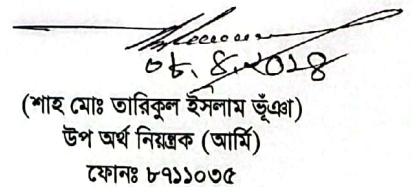 ০৮.৪.২০১৪
(শাহ মোঃ তারিকুল ইসলাম ভূঁঞা)
উপ অর্থ নিয়ন্ত্রক (আর্মি)
ফোনঃ ৮৭১১০৩৫